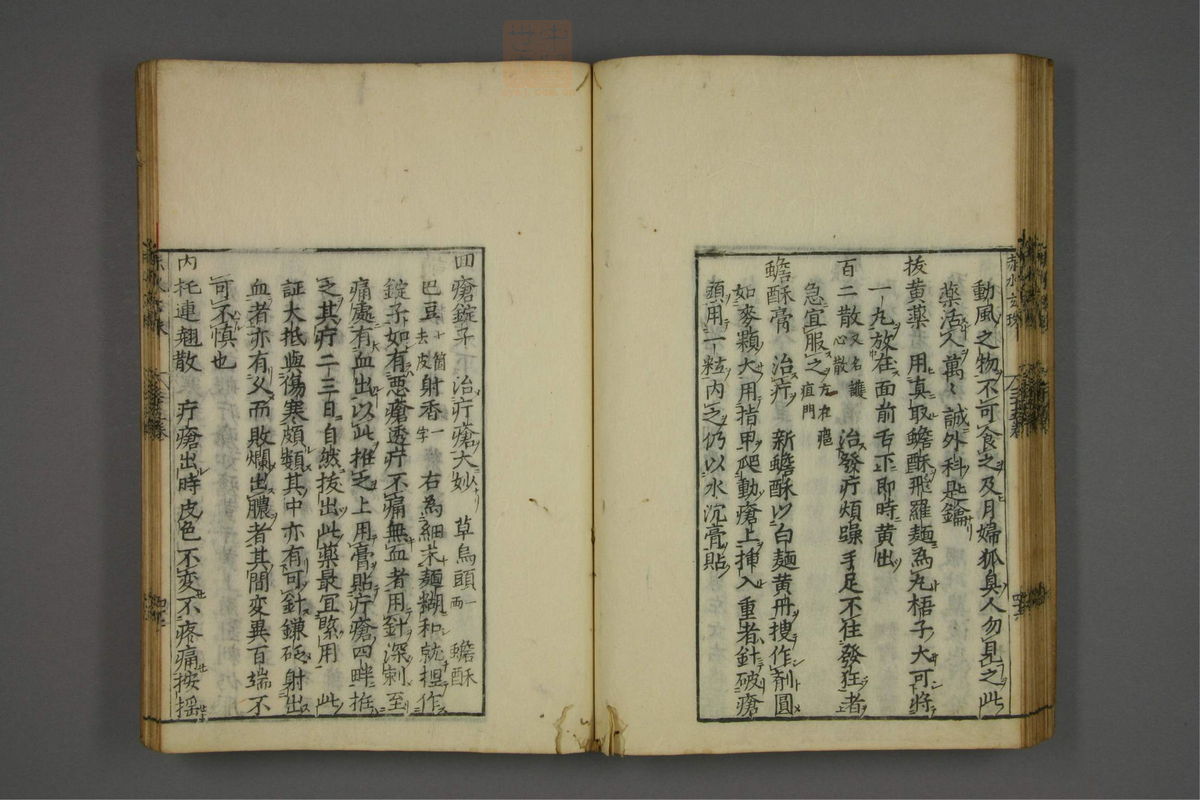 動風之物不可食之及月婦狐臭人勿見之此
藥活人萬々誠外科匙鑰
拔黃藥 用真取蟾酥飛羅麵為丸梧子大可將
一丸放在面前舌下即時黃出
百二散 又名護心散 治發疔煩躁手足不住發狂者
急宜服之 方在癰疽門
蟾酥膏 治疔 新蟾酥以白麵黃丹搜作劑圓
如麥顆大用指甲爬動瘡上揷入重者針破瘡
頭用一粒內之仍以水沉膏貼
回瘡錠子 治疔瘡大妙 草烏頭一兩 蟾酥
巴豆十箇去皮 射香一字 右為細末麵糊和就揑作
錠子如有悪瘡透疔不痛無血者用針深刺至
痛處有血出以此推之上用膏貼疔瘡四畔推
之其疔二三日自然拔出此藥最宜敗用 此
証大抵與傷寒頗類其中亦有可針鎌砭射出
血者亦有久而敗爛出膿者其間変異百端不
可不慎也
內托連翹散 疔瘡出時皮色不変不疼痛按搖